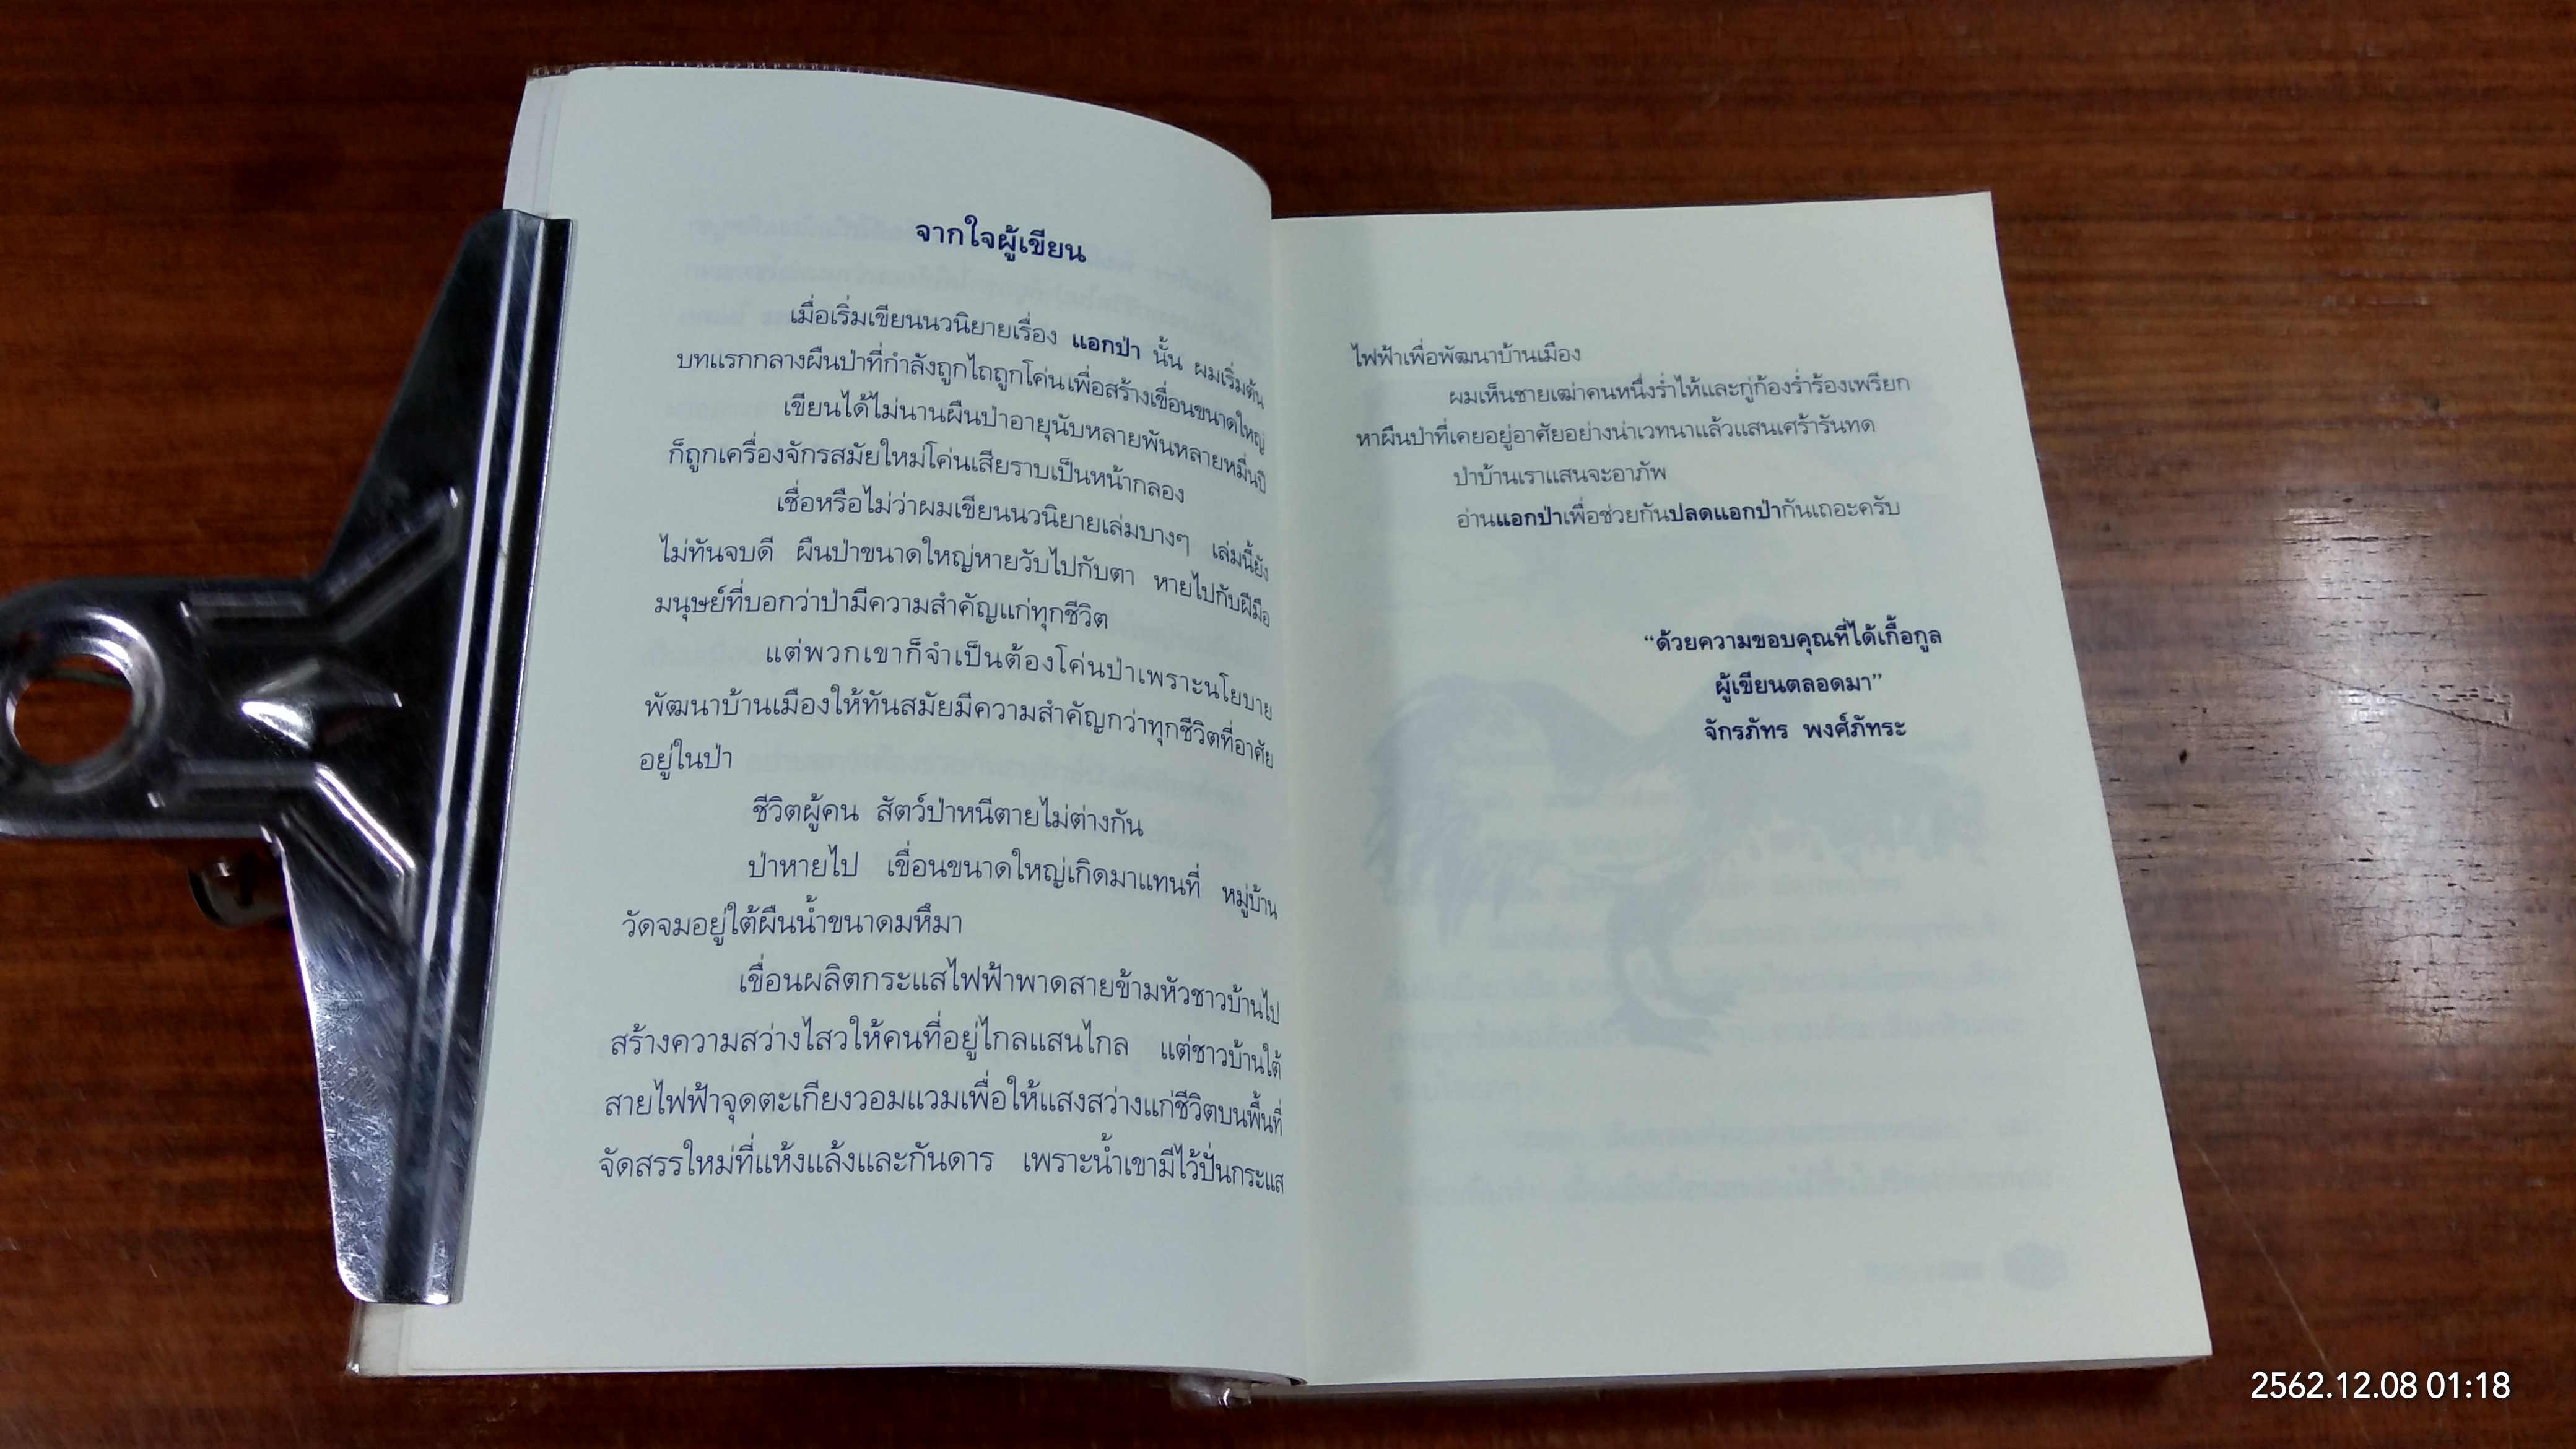 จากใจผู้เขียน
เมื่อเริ่มเขียนนวนิยายเรื่อง แอกป่า นั้น ผมเริ่มต้น
บทแรกกลางผืนป่าที่กำลังถูกไถถูกโค่นเพื่อสร้างเขื่อนขนาดใหญ่
เขียนได้ไม่นานผืนป่าอายุนับหลายพันหลายหมื่นปี
ก็ถูกเครื่องจักรสมัยใหม่โค่นเสียราบเป็นหน้ากลอง
เชื่อหรือไม่ว่าผมเขียนนวนิยายเล่มบางๆ เล่มนี้ยัง
ไม่ทันจบดี ผืนป่าขนาดใหญ่หายวับไปกับตา หายไปกับฝีมือ
มนุษย์ที่บอกว่าป่ามีความสำคัญแก่ทุกชีวิต
แต่พวกเขาก็จำเป็นต้องโค่นป่าเพราะนโยบาย
พัฒนาบ้านเมืองให้ทันสมัยมีความสำคัญกว่าทุกชีวิตที่อาศัย
อยู่ในป่า
ชีวิตผู้คน สัตว์ป่าหนีตายไม่ต่างกัน
ป่าหายไป เขื่อนขนาดใหญ่เกิดมาแทนที่ หมู่บ้าน
วัดจมอยู่ใต้ผืนน้ำขนาดมหึมา
เขื่อนผลิตกระแสไฟฟ้าพาดสายข้ามหัวชาวบ้านไป
สร้างความสว่างไสวให้คนที่อยู่ไกลแสนไกล แต่ชาวบ้านใต้
สายไฟฟ้าจุดตะเกียงวอมแวมเพื่อให้แสงสว่างแก่ชีวิตบนพื้นที่
จัดสรรใหม่ที่แห้งแล้งและกันดาร เพราะน้ำเขามีไว้ปั่นกระแส
ไฟฟ้าเพื่อพัฒนาบ้านเมือง
ผมเห็นชายเฒ่าคนหนึ่งร่ำไห้และกู่ก้องร่ำร้องเพรียก
หาผืนป่าที่เคยอยู่อาศัยอย่างน่าเวทนาแล้วแสนเศร้ารันทด
ป่าบ้านเราแสนจะอาภัพ
อ่านแอกป่าเพื่อช่วยกันปลดแอกป่ากันเถอะครับ
“ด้วยความขอบคุณที่ได้เกื้อกูล
ผู้เขียนตลอดมา”
จักรภัทร พงศ์ภัทระ
2562.12.08 01:18